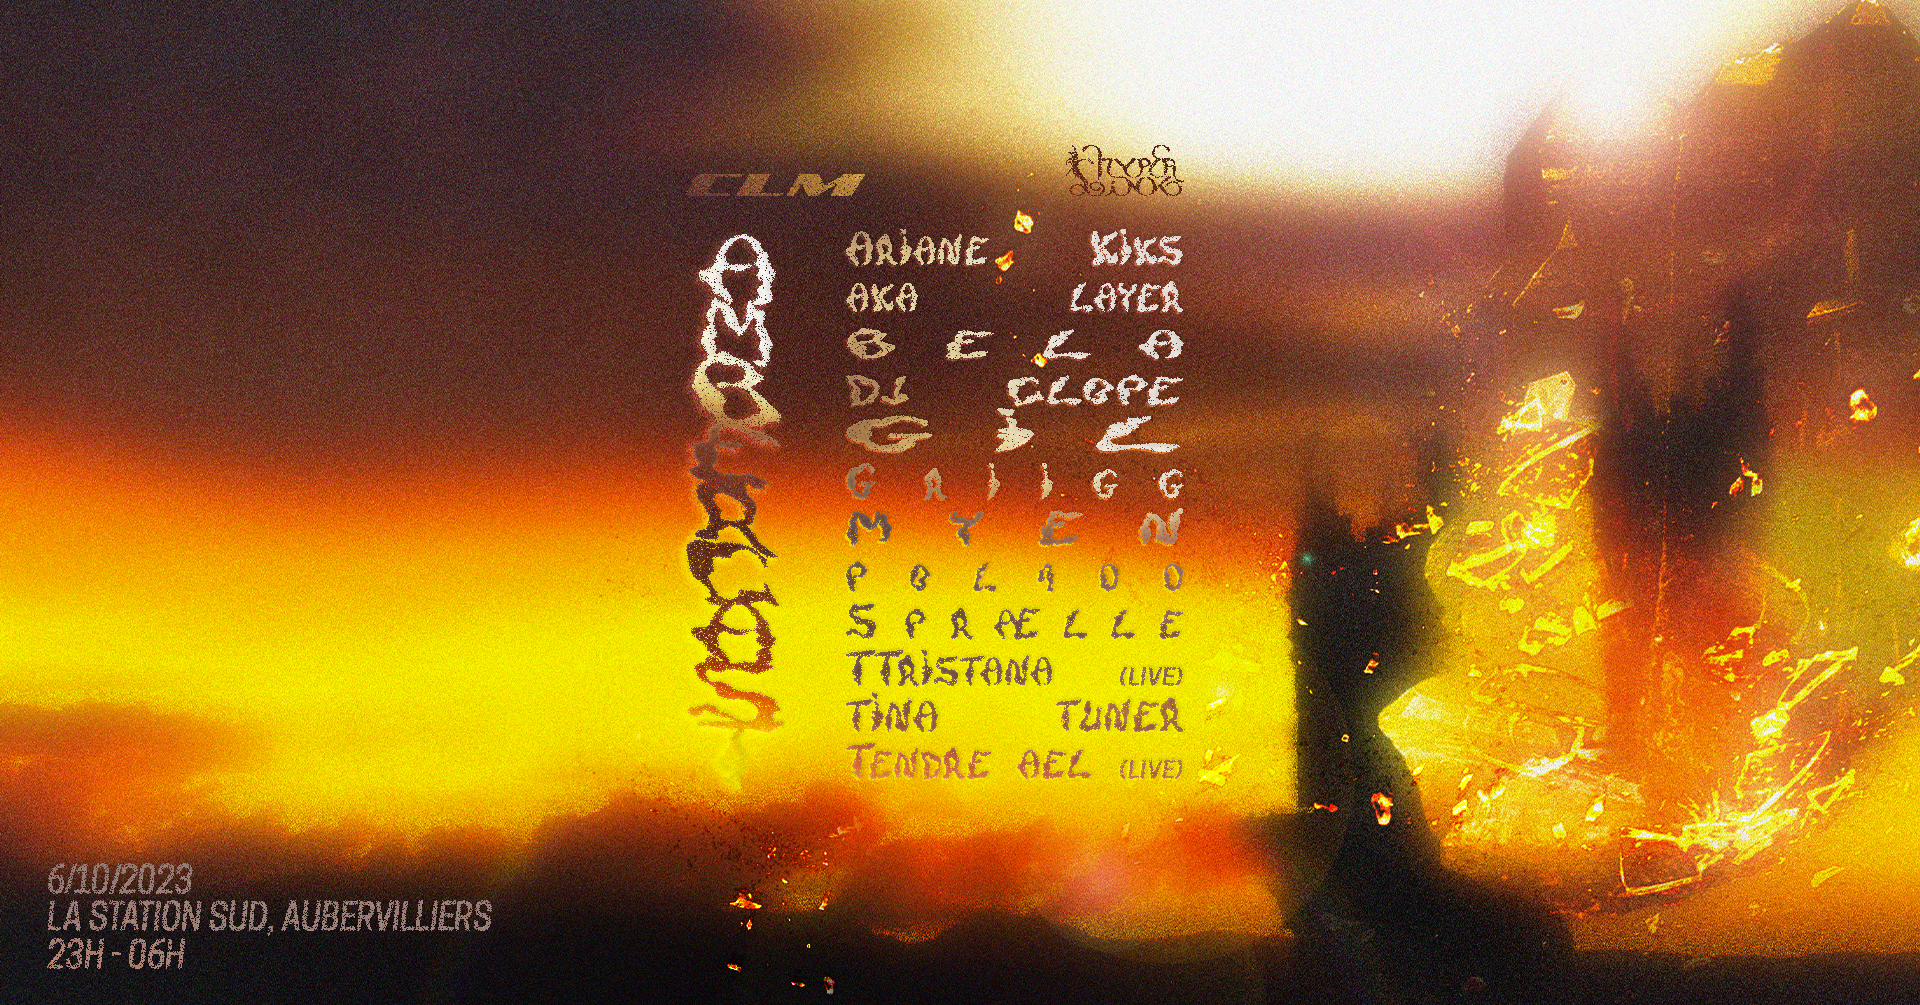 CLM
HYPER
ARIANE KIKS
AKA LAYER
BELA
DJ CLOPE
GIL
GRIIGG
MYEN
SPRAELLE
TTRISTANA (LIVE)
TINA TUNER
TENDRE AEL (LIVE)
6/10/2023
LA STATION SUD, AUBERVILLIERS
23H - 06H